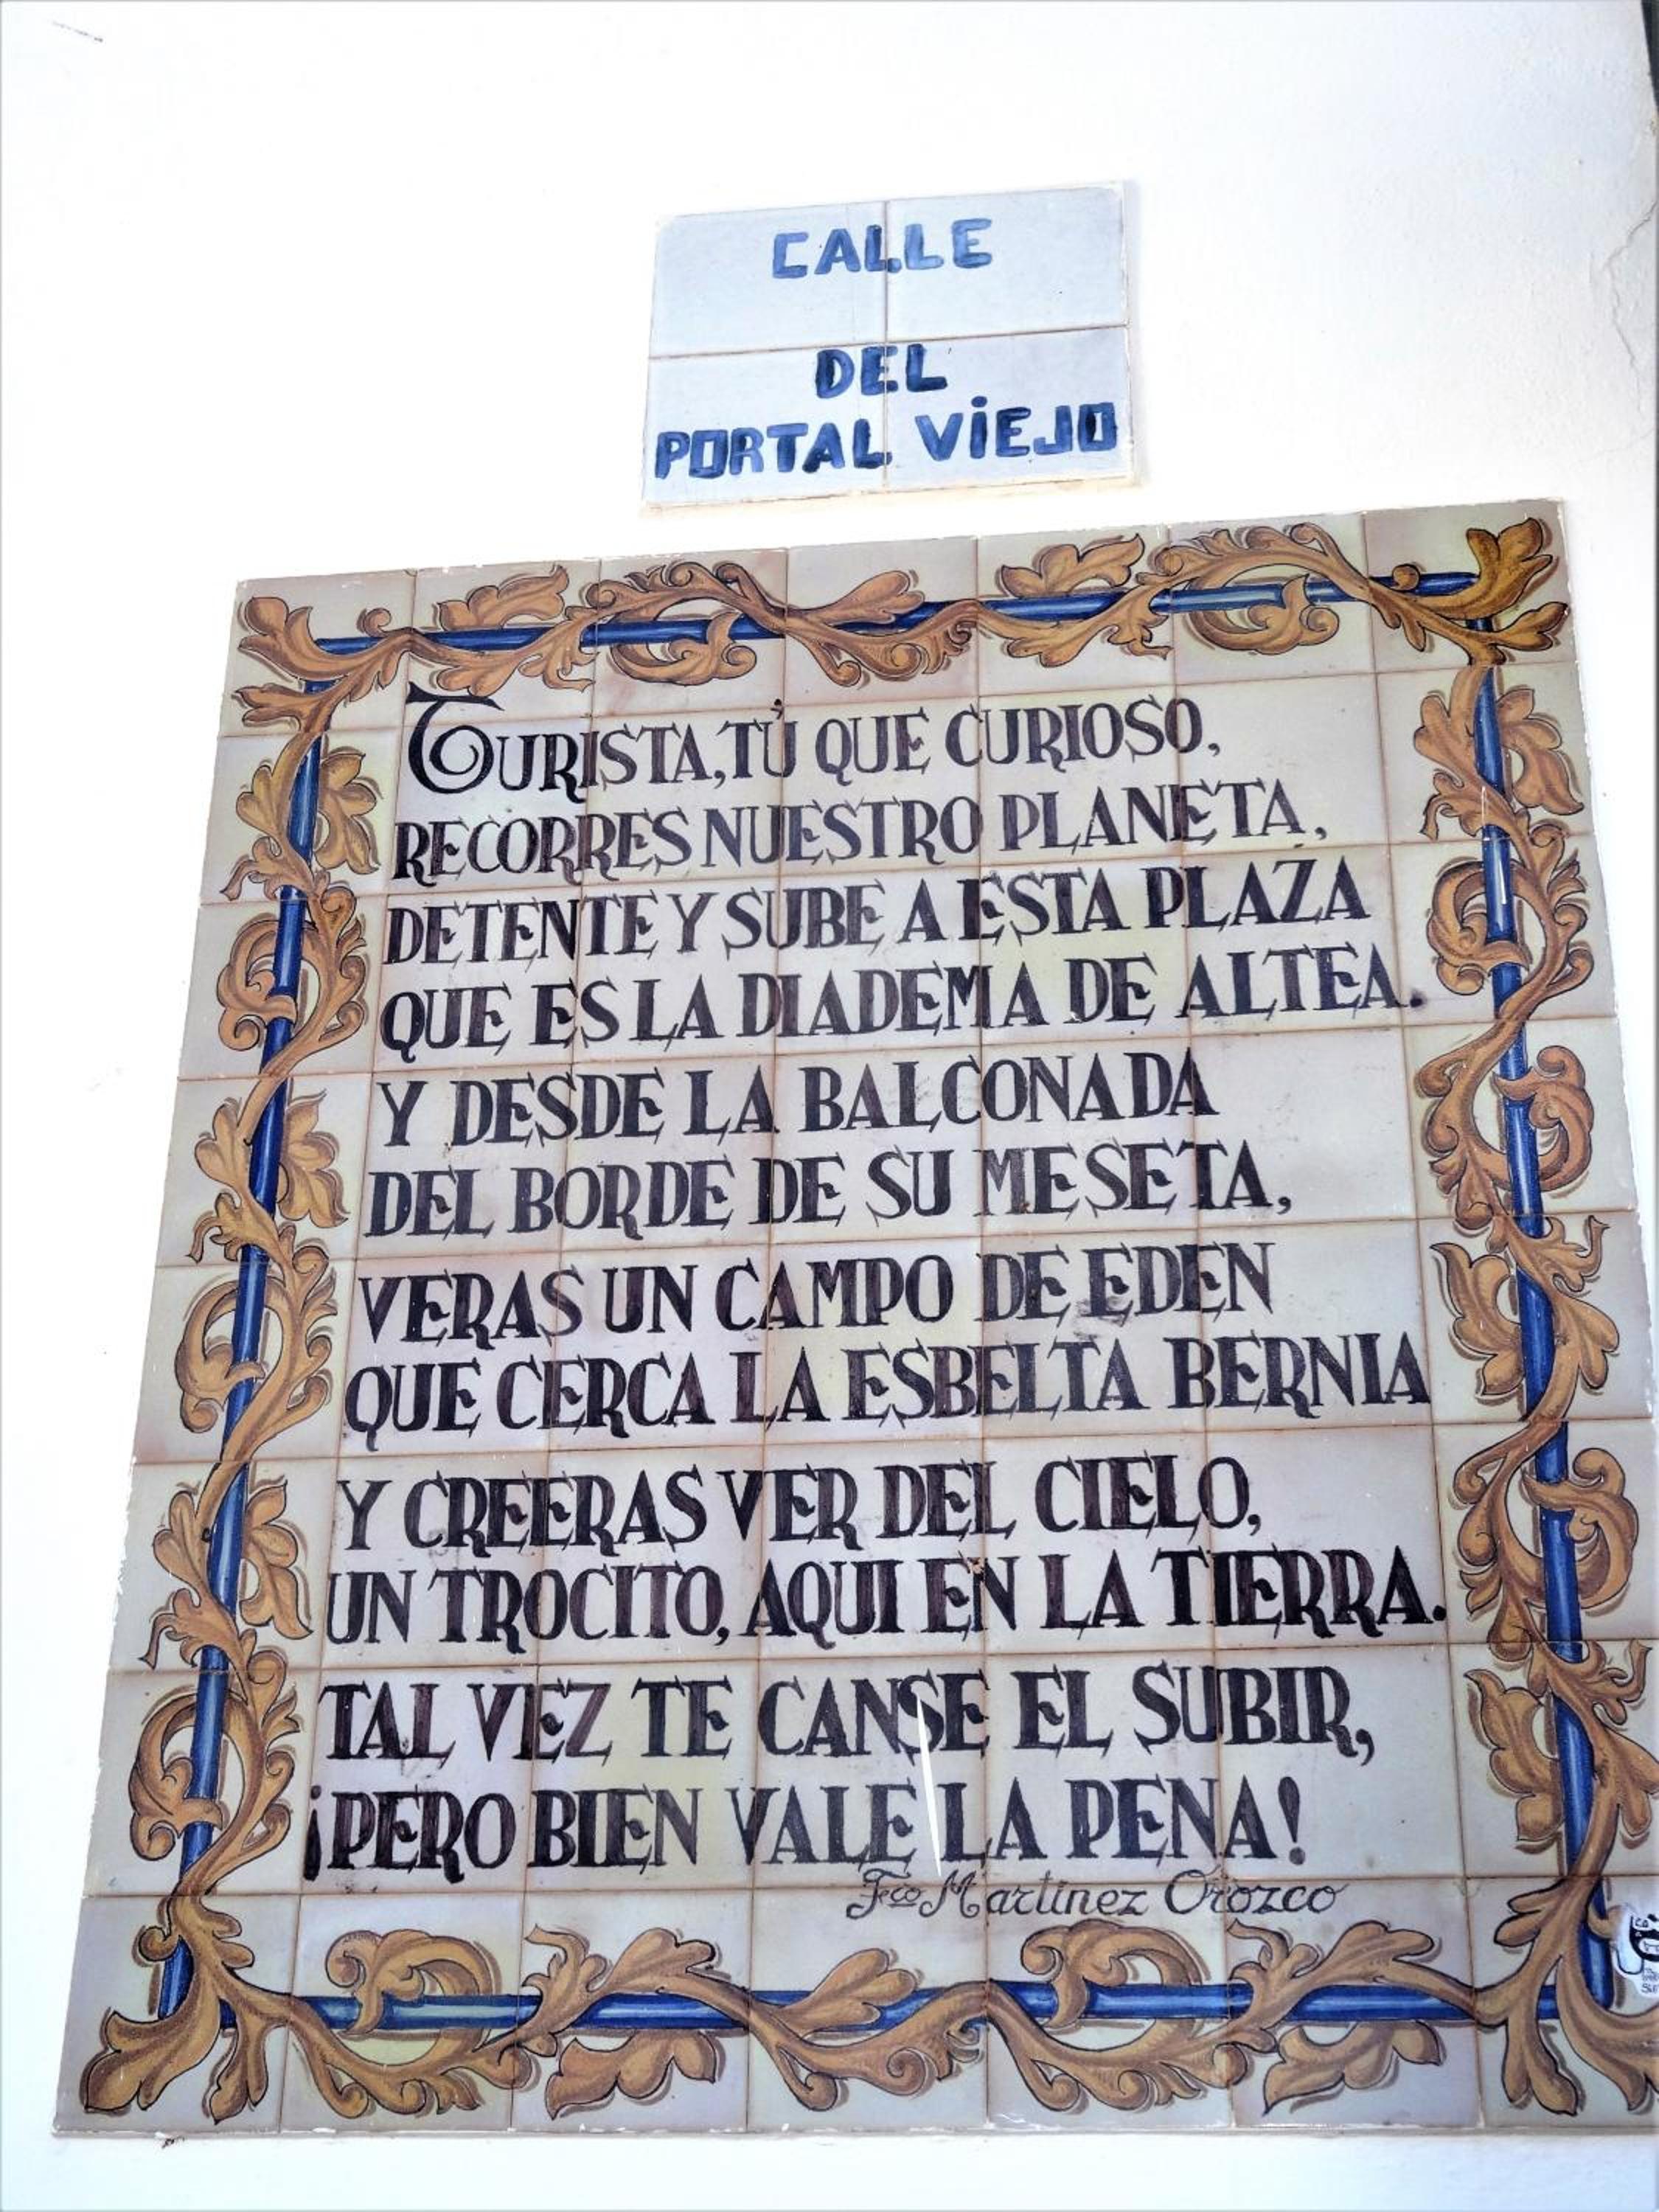 CALLE
DEL
PORTAL VIEJO
TURISTA, TÚ QUE CURIOSO,
RECORRES NUESTRO PLANETA,
DETENTE Y SUBE A ESTA PLAZA
QUE ES LA DIADEMA DE ALTEA.
Y DESDE LA BALCONADA
DEL BORDE DE SU MESETA,
VERAS UN CAMPO DE EDEN
QUE CERCA LA ESBELTA BERNIA
Y CREERAS VER DEL CIELO,
UN TROCITO, AQUI EN LA TIERRA.
TAL VEZ TE CANSE EL SUBIR,
¡PERO BIEN VALE LA PENA!
Fco Martinez Orozco